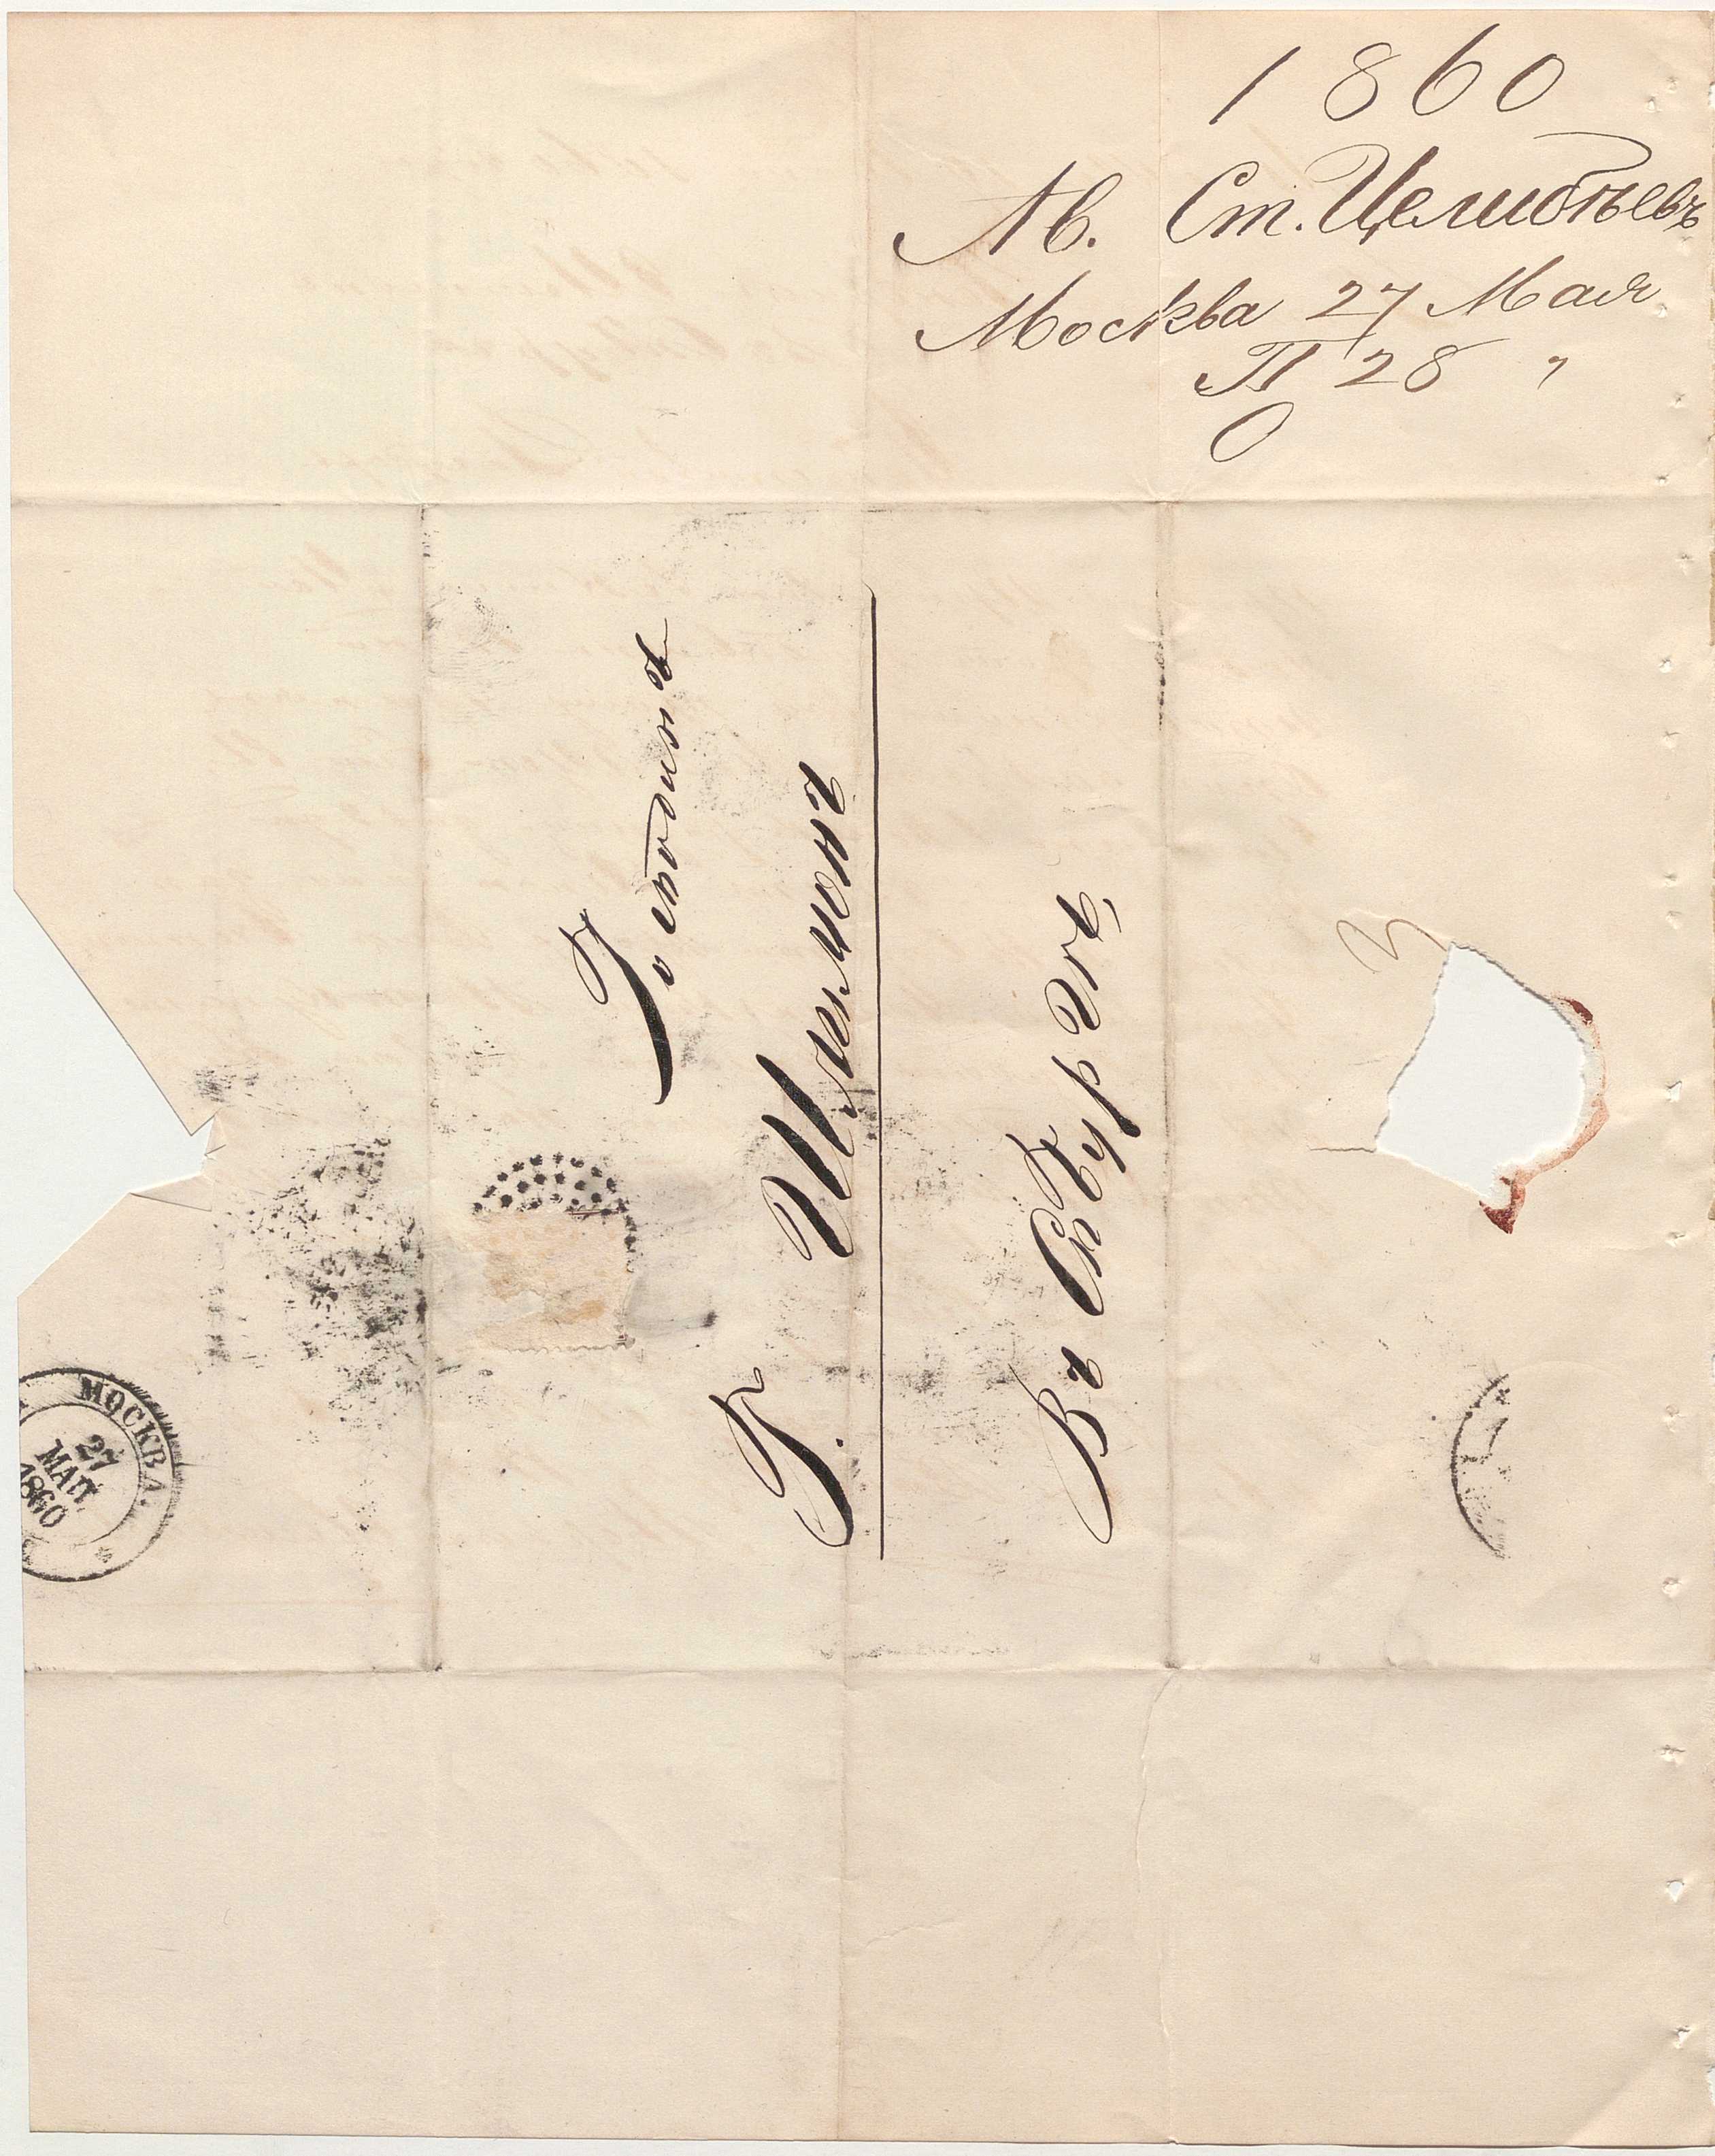 1860
Ав. Ст. Целибѣевъ
Москва 27 Мая
П 28 "
О
Господинъ
Г. Шлимонъ
Въ СПБургѣ,
МОСКВА.
27
МАІЯ
1860